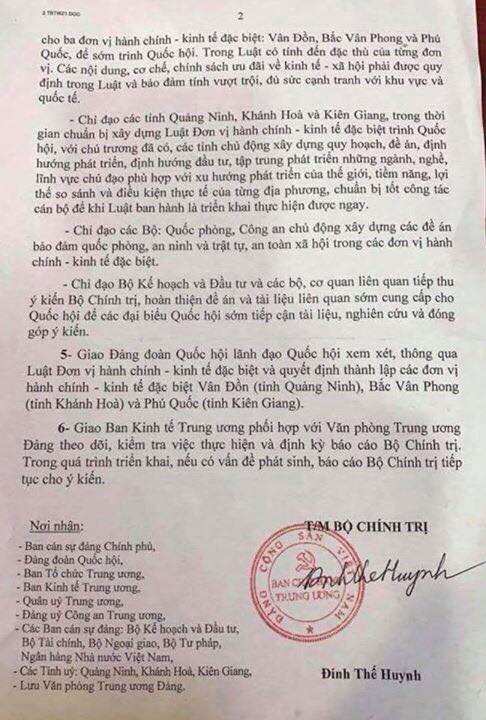 2 TBTW21.DOC
2
cho ba đơn vị hành chính - kinh tế đặc biệt: Vân Đồn, Bắc Vân Phong và Phú
Quốc, để sớm trình Quốc hội. Trong Luật có tính đến đặc thù của từng đơn
vị. Các nội dung, cơ chế, chính sách ưu đãi về kinh tế - xã hội phải được quy
định trong Luật và bảo đảm tính vượt trội, đủ sức cạnh tranh với khu vực và
quốc tế.
- Chỉ đạo các tỉnh Quảng Ninh, Khánh Hoà và Kiên Giang, trong thời
gian chuẩn bị xây dựng Luật Đơn vị hành chính - kinh tế đặc biệt trình Quốc
hội, với chủ trương đã có, các tỉnh chủ động xây dựng quy hoạch, đề án, định
hướng phát triển, định hướng đầu tư, tập trung phát triển những ngành, nghề,
lĩnh vực chủ đạo phù hợp với xu hướng phát triển của thế giới, tiềm năng, lợi
thế so sánh và điều kiện thực tế của từng địa phương, chuẩn bị tốt công tác
cán bộ để khi Luật ban hành là triển khai thực hiện được ngay.
- Chỉ đạo các Bộ: Quốc phòng, Công an chủ động xây dựng các đề án
bảo đảm quốc phòng, an ninh và trật tự, an toàn xã hội trong các đơn vị hành
chính - kinh tế đặc biệt.
- Chỉ đạo Bộ Kế hoạch và Đầu tư và các bộ, cơ quan liên quan tiếp thu
ý kiến Bộ Chính trị, hoàn thiện đề án và tài liệu liên quan sớm cung cấp cho
Quốc hội để các đại biểu Quốc hội sớm tiếp cận tài liệu, nghiên cứu và đóng
góp ý kiến.
5- Giao Đảng đoàn Quốc hội lãnh đạo Quốc hội xem xét, thông qua
Luật Đơn vị hành chính - kinh tế đặc biệt và quyết định thành lập các đơn vị
hành chính - kinh tế đặc biệt Vân Đồn (tỉnh Quảng Ninh), Bắc Vân Phong
(tỉnh Khánh Hoà) và Phú Quốc (tỉnh Kiên Giang).
6- Giao Ban Kinh tế Trung ương phối hợp với Văn phòng Trung ương
Đảng theo dõi, kiểm tra việc thực hiện và định kỳ báo cáo Bộ Chính trị.
Trong quá trình triển khai, nếu có vấn đề phát sinh, báo cáo Bộ Chính trị tiếp
tục cho ý kiến.
Nơi nhận:
- Ban cán sự đảng Chính phủ,
- Đảng đoàn Quốc hội,
- Ban Tổ chức Trung ương,
- Ban Kinh tế Trung ương,
- Quân uỷ Trung ương,
- Đảng uỷ Công an Trung ương,
- Các Ban cán sự đảng: Bộ Kế hoạch và Đầu tư,
Bộ Tài chính, Bộ Ngoại giao, Bộ Tư pháp,
Ngân hàng Nhà nước Việt Nam,
- Các Tỉnh uỷ: Quảng Ninh, Khánh Hoà, Kiên Giang,
- Lưu Văn phòng Trung ương Đảng.
T/M BỘ CHÍNH TRỊ
ĐẢNG CỘNG SẢN VIỆT NAM
BAN
TRUNG ƯƠNG
Đinh Thế Huynh